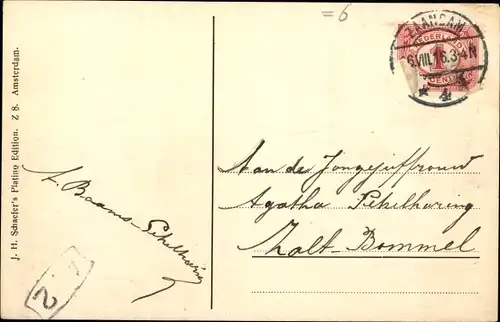 =6
ZAANDAM
6.VIII.16.3-4N
* 4
NEDERLAND
1
CENT
J. H. Schaefer's Platino Edition. Z 8. Amsterdam.
A. Baams-Pekelharing
2
Aan de Jongejuffrouw
Agatha Pekelharing
Zalt-Bommel